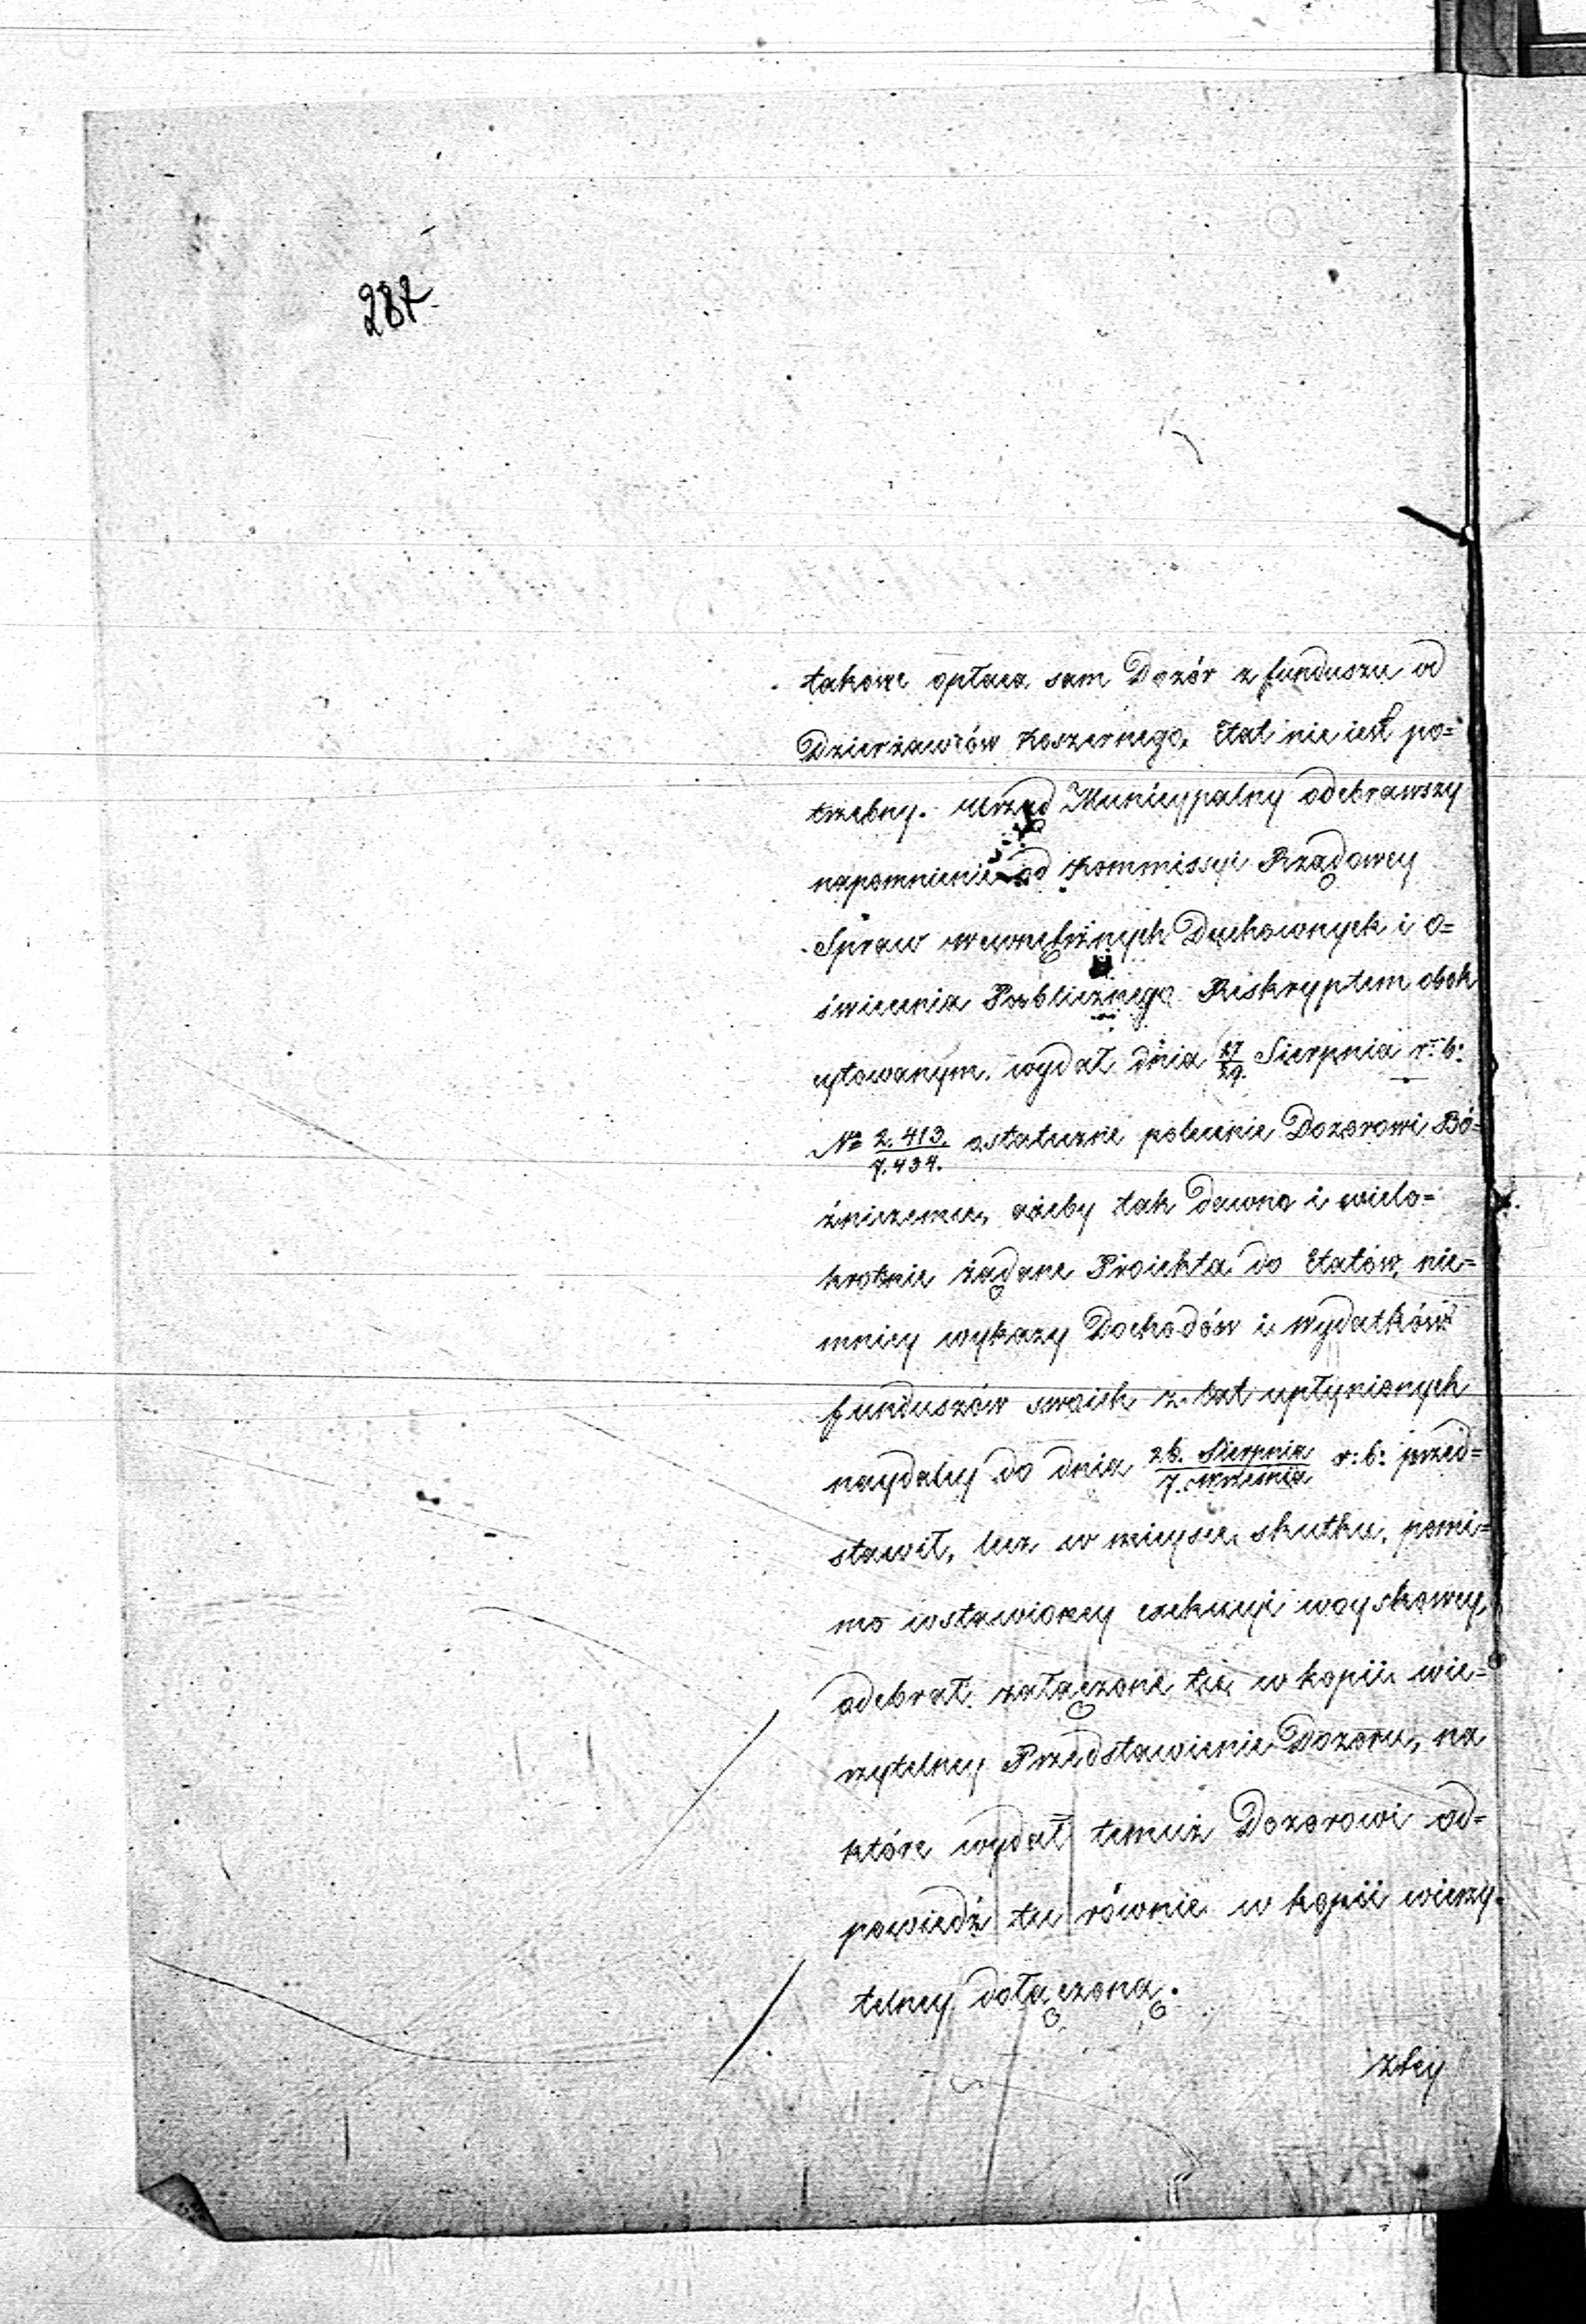 287
takowe opłaca sam Dozór z funduszu od
Dzierżawców Koszernego, Etat nie iest po=
trzebny. Urząd Municypalny odebrawszy
napomnienie od Kommissyi Rządowey
Spraw wewnętrznych Duchownych i O=
świecenia Publicznego Reskryptem obok
cytowanym, wydał dnia 17/29. Sierpnia r: b:
Nº 2.413./7.434. ostateczne polecenie Dozorowi Bó=
źniczemu, ażeby tak dawno i wielo=
krotnie żądane Proiekta do Etatów, nie=
mniey wykazy Dochodów i wydatków
funduszów swoich z lat upłynionych
naydaley do dnia 26. Sierpnia/7. września r: b: przed=
stawił, lecz w mieysce skutku, pomi=
mo wstawioney exekucyi woyskowey,
odebrał załączone tu w kopii wie=
rzytelney Przedstawienie Dozoru, na
które wydał temuż Dozorowi od=
powiedź tu równie w kopii wierzy=
telney dołączoną.
Z tey